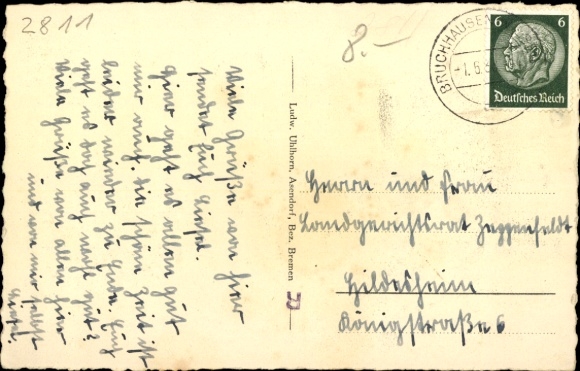 2811
8.-
BRUCHHAUSEN
-1.6.
6 6
Deutsches Reich
Viele Grüße von hier
sendet Euch
Hier geht es allen gut
mir auch. die schöne Zeit ist
leider wieder zu Ende. Euch
geht es doch auch wohl gut?
Viele Grüße von allen hier
und von mir selbst
Ludw. Uhlhorn, Asendorf, Bez. Bremen
Herrn und Frau
Landgerichtsrat Zeppenfeldt
Hildesheim
Königstraße 6